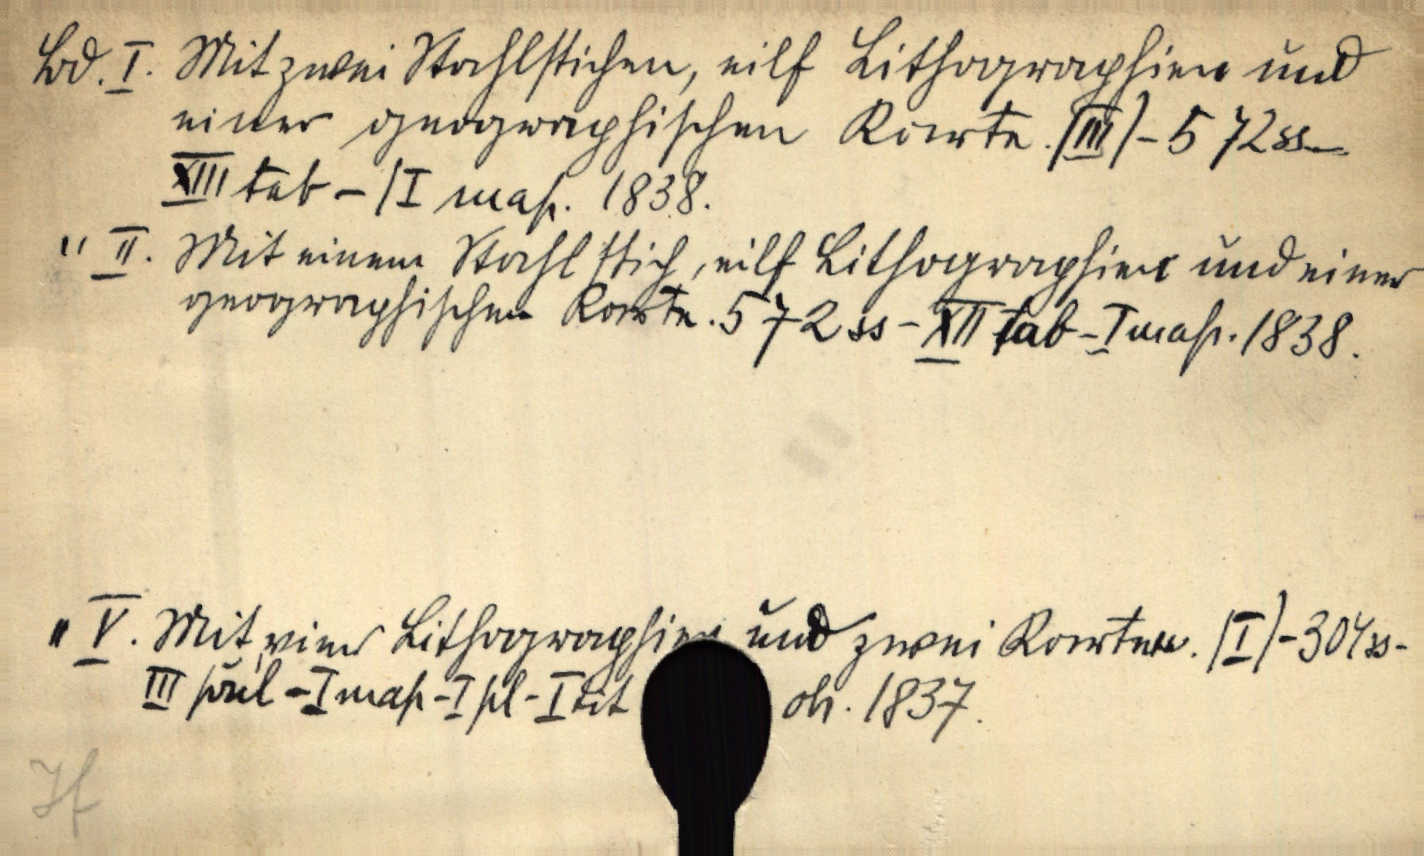 Bd. I. Mit zwei Stahlstichen, eilf Lithographien und
einer geographischen Karte. (III) - 572 ss -
XIII tab - (I map. 1838.
" II. Mit einem Stahlstich, eilf Lithographien und einer
geographischen Karte. 572 ss - XII tab - I map. 1838.
" V. Mit vier Lithographien und zwei Karten. (I) - 304 ss -
III - I map - I pl - I tit 1837.